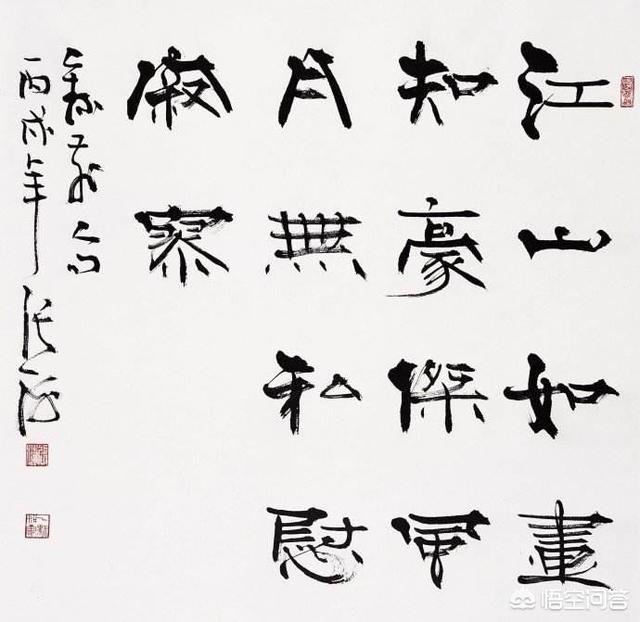 江山如畫
知豪傑風
月無私慰
寂寥
丙戌年 张海
悟空问答